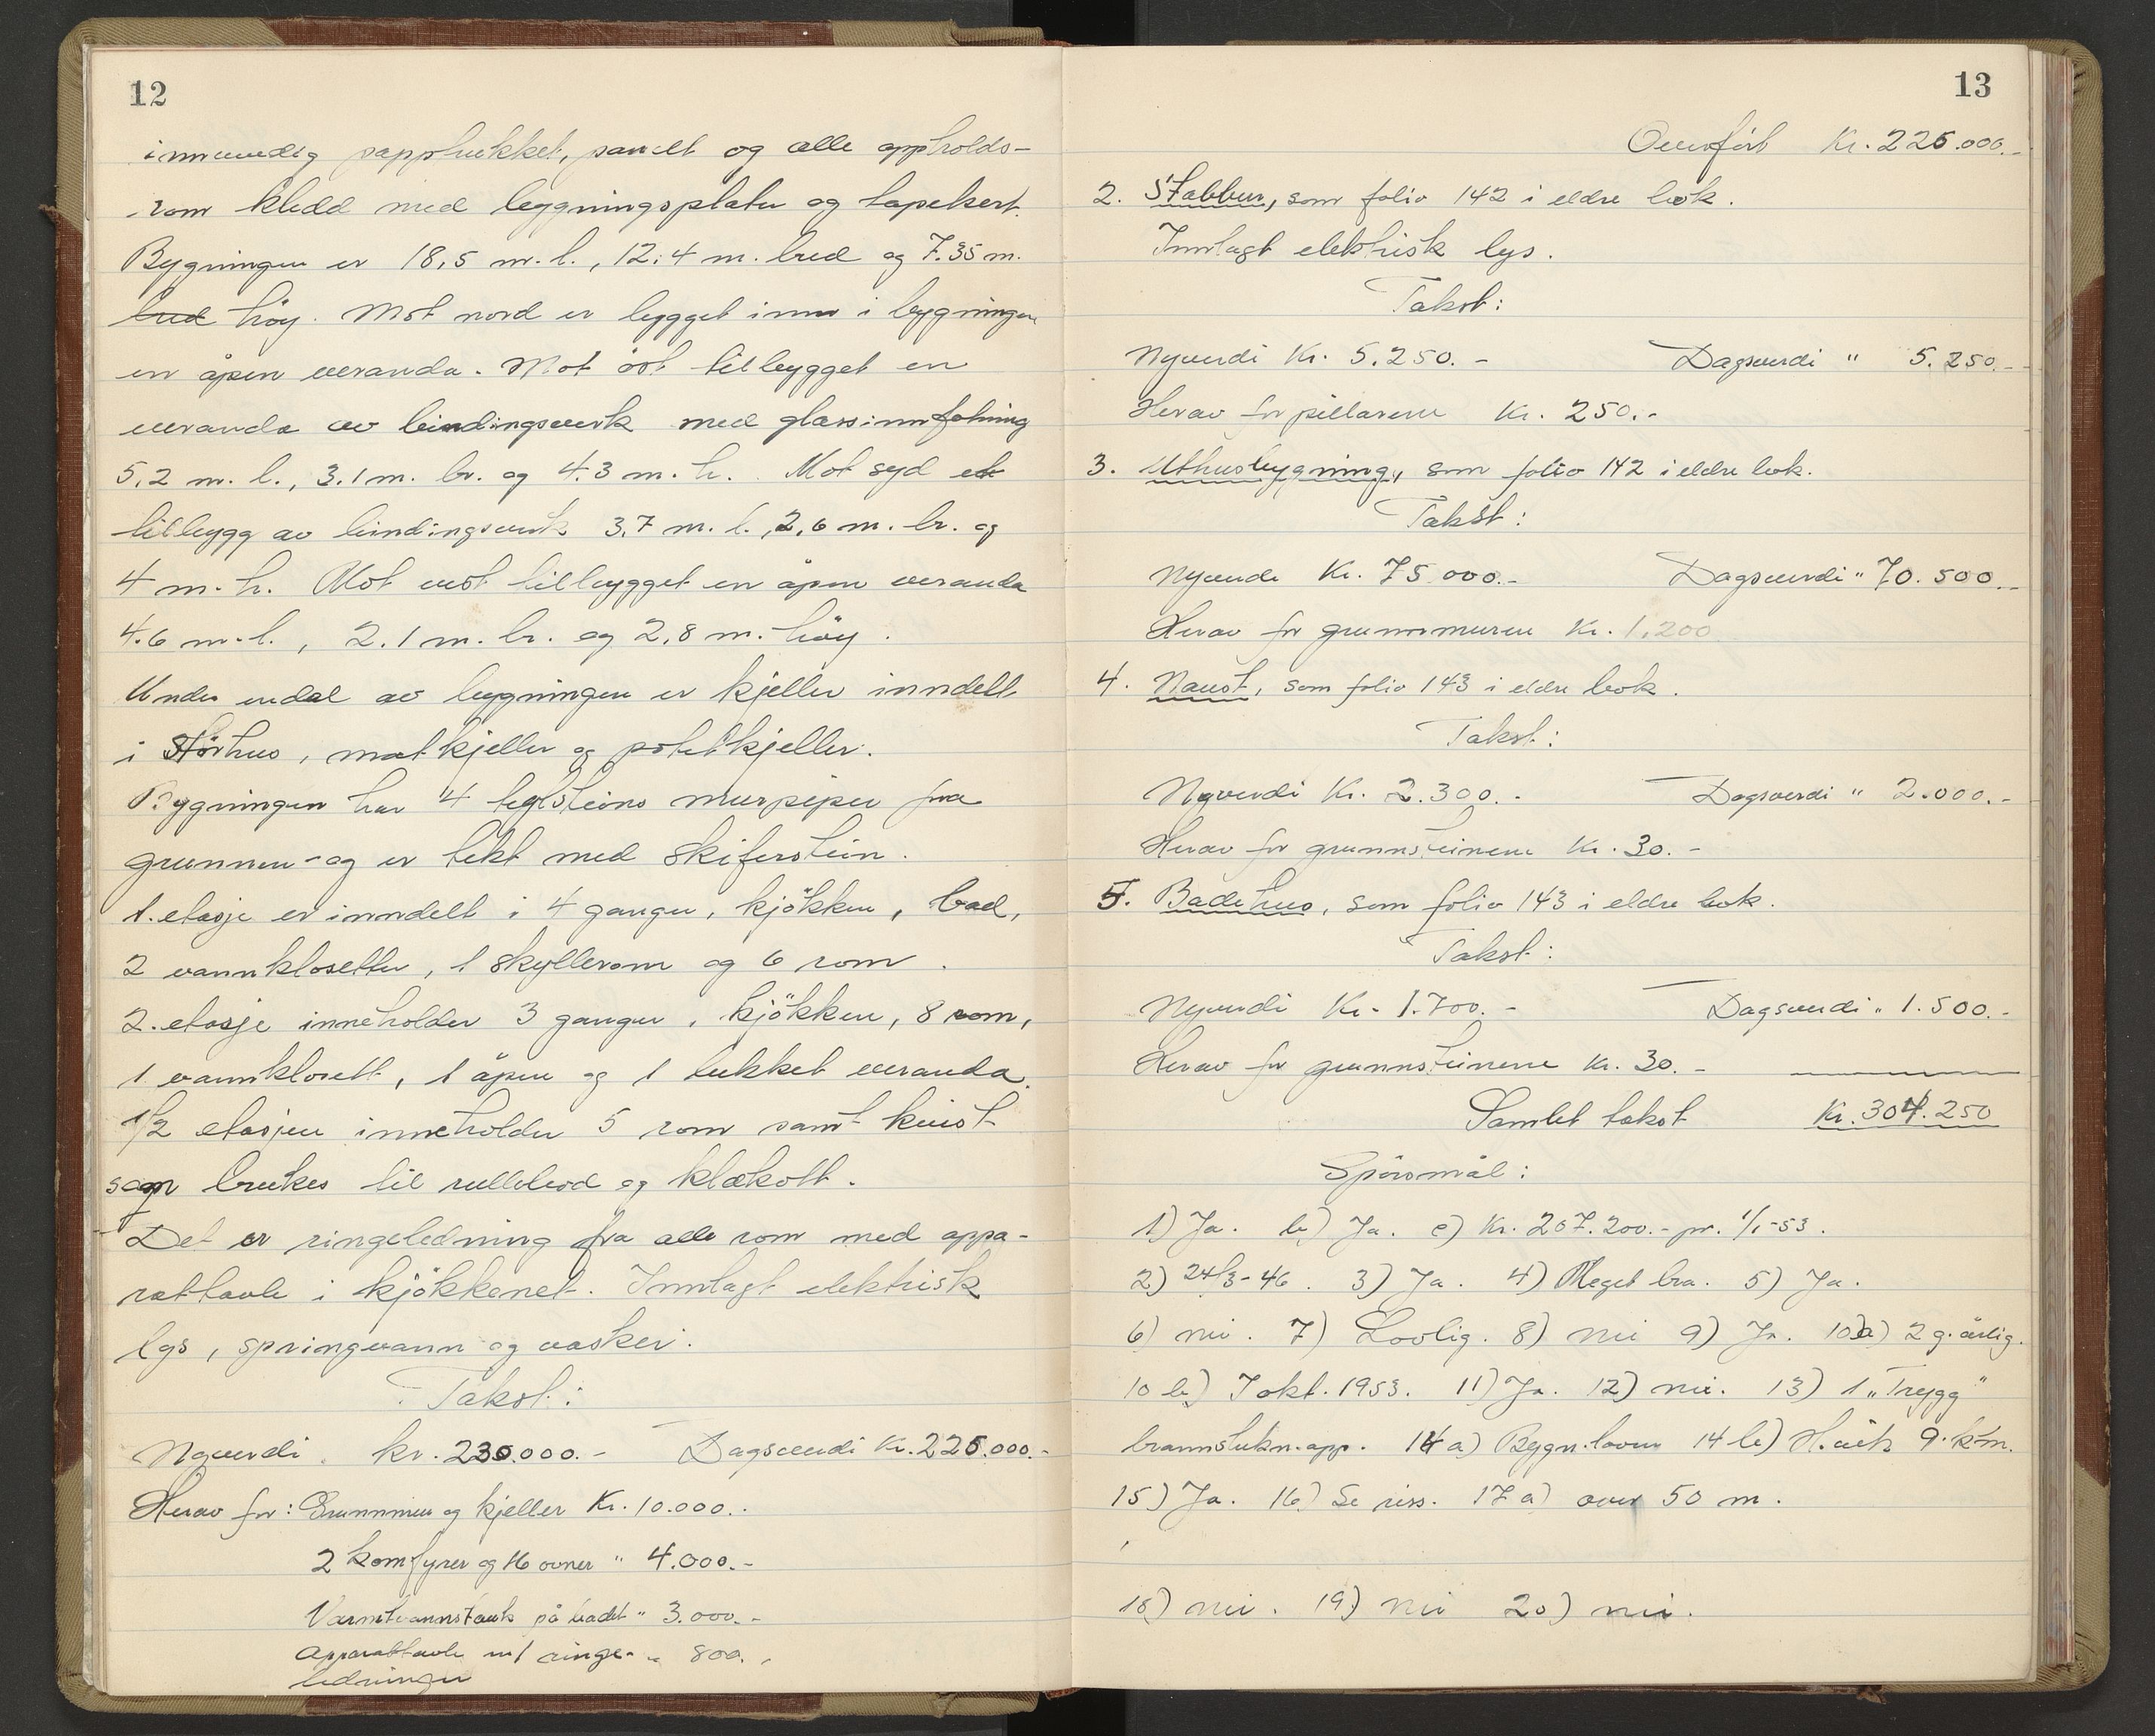 12
innvendig papptrukket, panelt og alle oppholds-
rom kledd med byggningsplater og tapetsert.
Bygningen er 18,5 m. l., 12,4 m. bred og 7.35 m.
bred höy. Mot nord er bygget inn i bygningen
en åpen veranda. Mot öst tilbygget en
veranda av bindingsverk med glassinnfatning
5,2 m. l., 3.1 m. br. og 4.3 m. h. Mot syd et
tilbygg av bindingsverk 3,7 m. l. 2,6 m. br. og
4 m. h. Mot vest tilbygget en åpen veranda
4.6 m. l., 2.1 m. br. og 2,8 m. höy.
Under endel av bygningen er kjeller inndelt
i Störhus, matkjeller og potetkjeller.
Bygningen har 4 teglsteins murpiper fra
grunnen - og er tekt med skiferstein.
1. etasje er inndelt i 4 ganger, kjökken, bad,
2 vannklosetter, 1 skyllerom og 6 rom.
2. etasje inneholder 3 ganger, kjökken, 8 rom,
1 vannklosett, 1 åpen og 1 lukket veranda.
1/2 etasjen inneholder 5 rom samt kvist
som brukes til rullebod og klækott.
Det er ringeledning fra alle rom med appa-
rattavle i kjökkenet. Innlagt elektrisk
lys, springvann og vasker.
Takst:
Nyverdi kr. 230.000.- Dagsverdi Kr. 225.000.-
Herav for: Grunnmur og kjeller Kr. 10.000.-
2 komfyrer og 16 ovner " 4.000.-
Varmtvannstank på badet " 3.000.-
Apparattavle m/ ringe- " 800.-
ledninger
13
Overfört Kr. 225.000.-
2. Stabbur, som folio 142 i eldre bok.
Innlagt elektrisk lys.
Takst:
Nyverdi Kr. 5.250.- Dagsverdi " 5.250.-
Herav for pillarene Kr. 250.-
3. Uthusbygning, som folio 142 i eldre bok.
Takst:
Nyverdi Kr. 75.000.- Dagsverdi " 70.500.-
Herav for grunnmuren Kr. 1.200
4. Naust, som folio 143 i eldre bok.
Takst:
Nyverdi Kr. 2.300.- Dagsverdi " 2.000.-
Herav for grunnsteinene Kr. 30.-
5. Badehus, som folio 143 i eldre bok.
Takst:
Nyverdi Kr. 1.700.- Dagsverdi " 1.500.-
Herav for grunnsteinene Kr. 30.-
Samlet takst Kr. 304.250
Spörsmål:
1) Ja. b) Ja. c) Kr. 207.200.- pr. 1/1-53.
2) 24/3-46. 3) Ja. 4) Meget bra. 5) Ja.
6) nei. 7) Lovlig. 8) nei 9) Ja. 10a) 2 g. årlig.
10 b) I okt. 1953. 11) Ja. 12) nei. 13) 1 "Trygg"
brannslukn.app. 14 a) Bygn.loven 14 b) 9. km.
15) Ja. 16) Se riss. 17 a) over 50 m.
18) nei. 19) nei 20) nei.